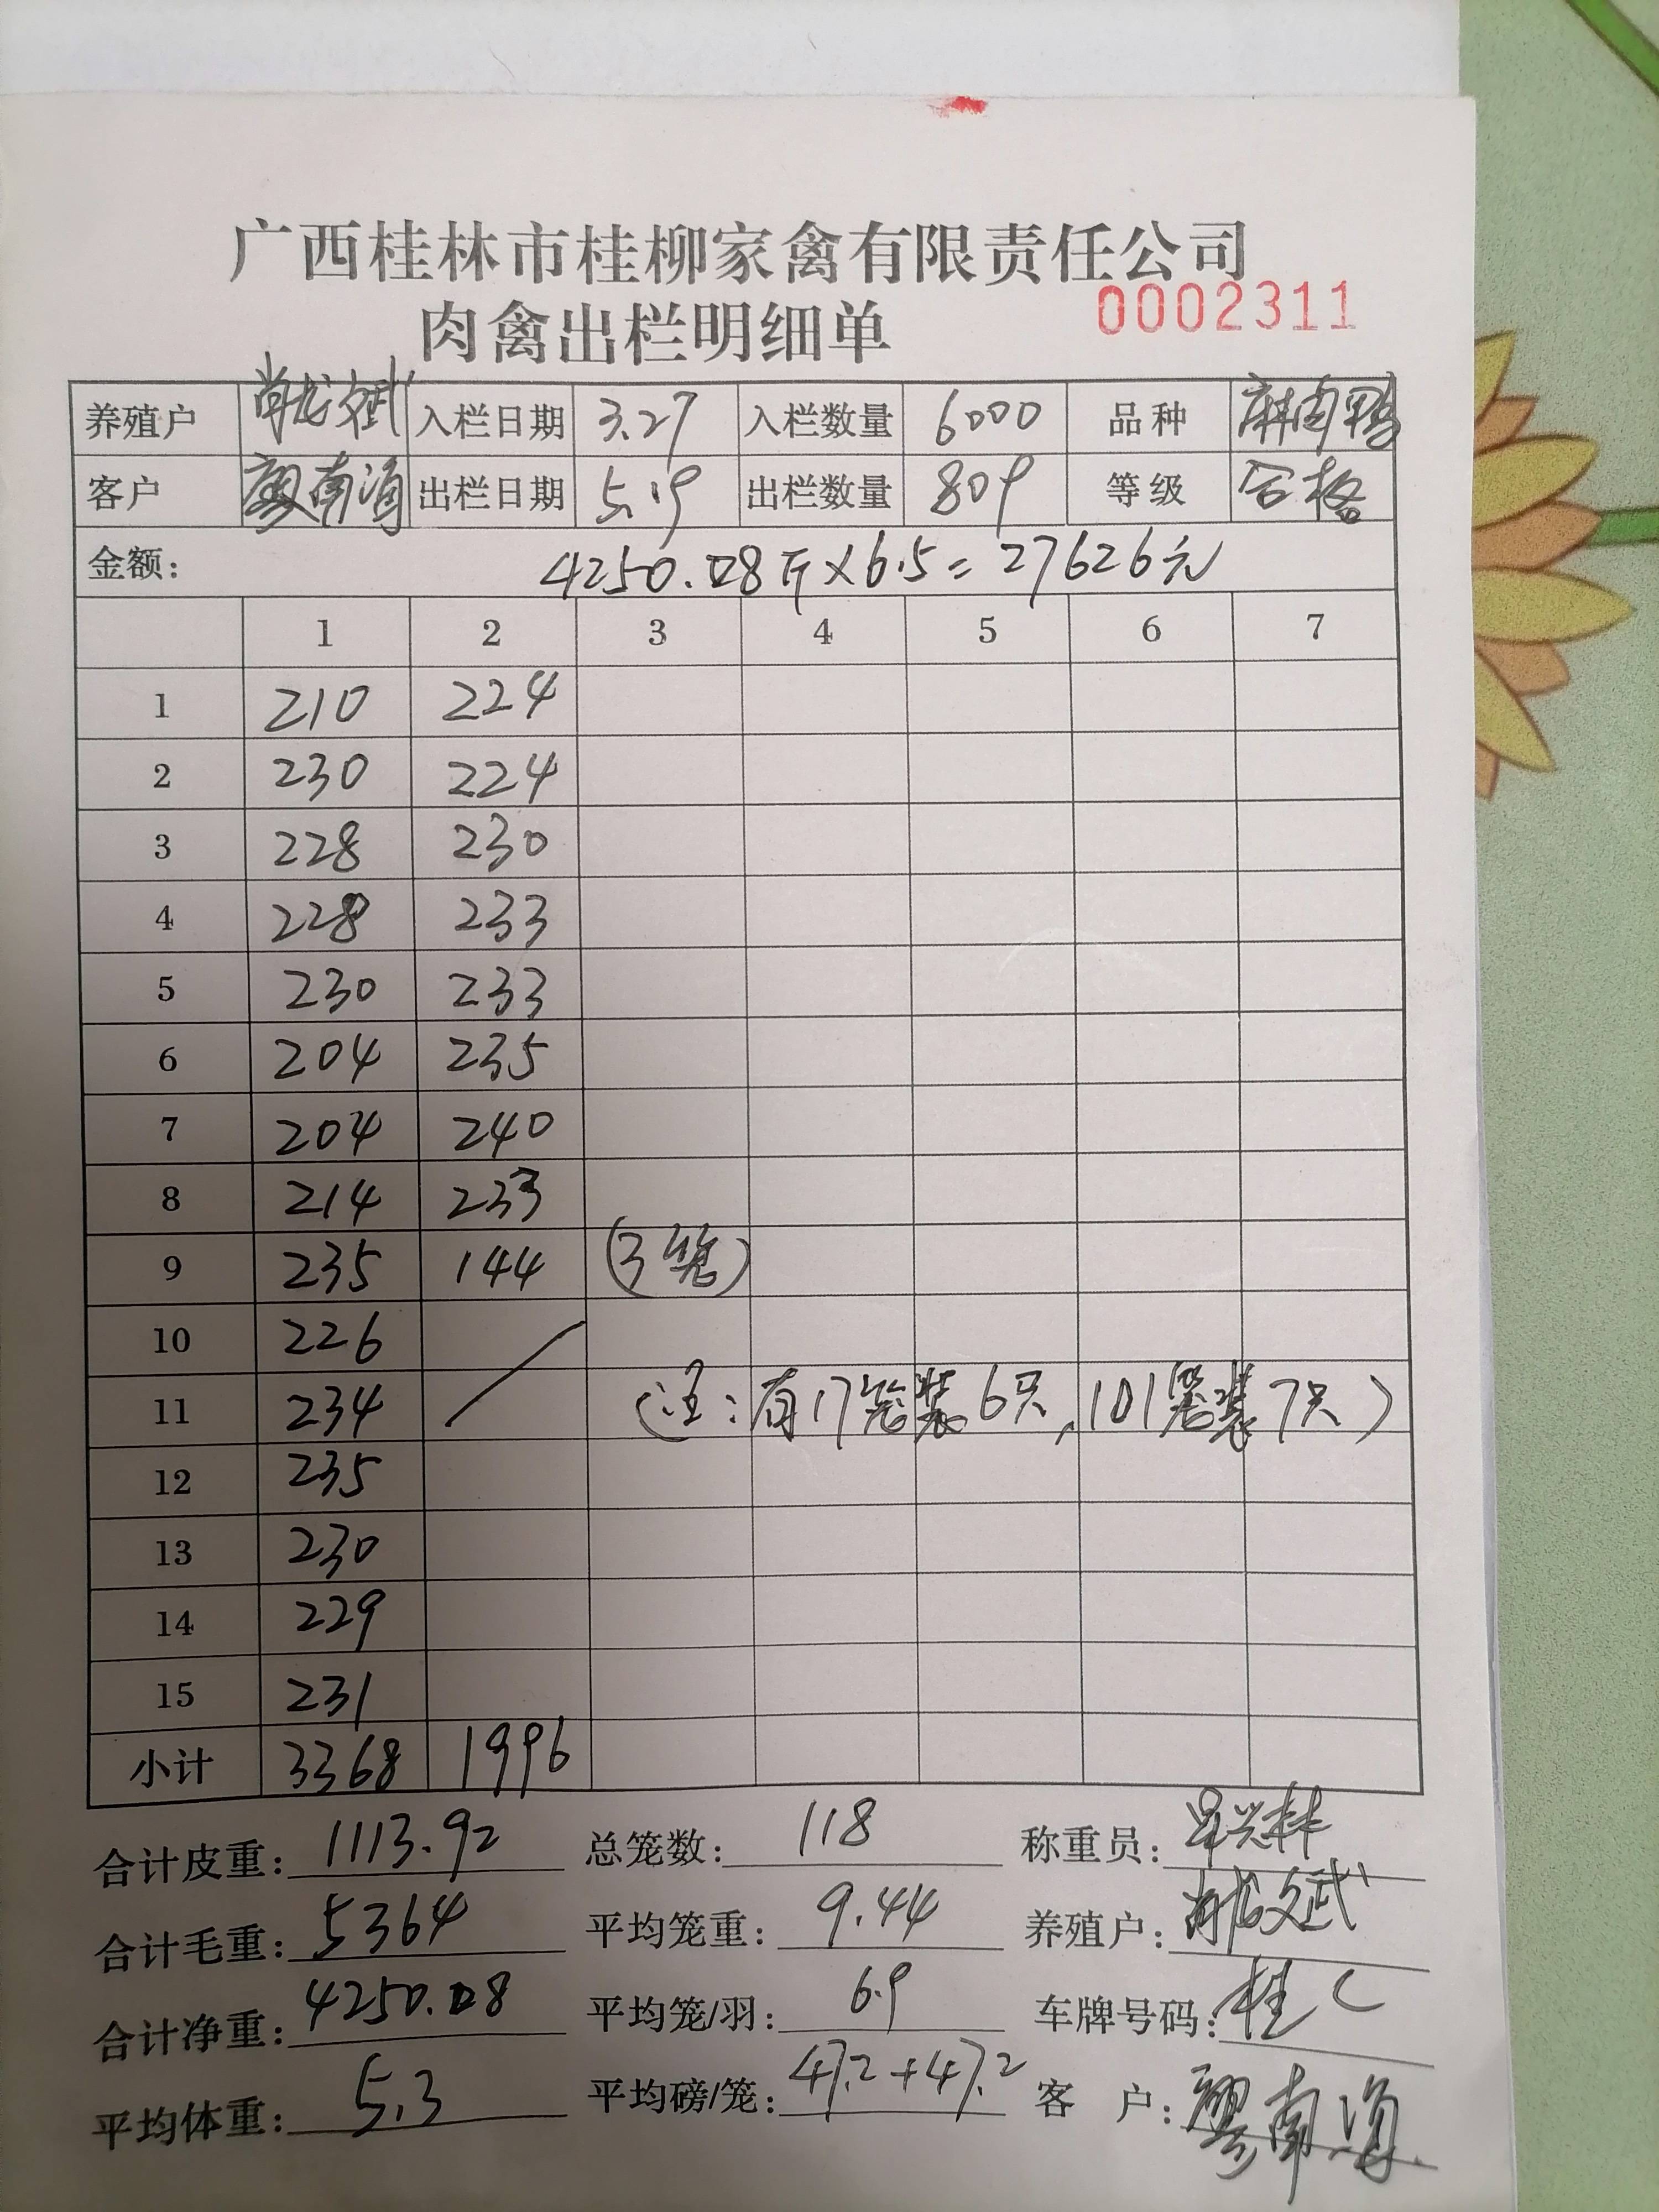 广西桂林市桂柳家禽有限责任公司
肉禽出栏明细单 0002311
养殖户 肖龙文武 入栏日期 3.27 入栏数量 6000 品种 麻肉鸭
客户 廖南海 出栏日期 5.19 出栏数量 809 等级 合格
金额: 4250.08斤×6.5=27626元
1 2 3 4 5 6 7
1 210 224
2 230 224
3 228 230
4 228 233
5 230 233
6 204 235
7 204 240
8 214 233
9 235 144 (3笼)
10 226
11 234 (注:有17笼装6只,101笼装7只)
12 235
13 230
14 229
15 231
小计 3368 1996
合计皮重: 1113.92 总笼数: 118 称重员:
合计毛重: 5364 平均笼重: 9.44 养殖户: 肖龙文武
合计净重: 4250.08 平均笼/羽: 6.9 车牌号码: 桂C
平均体重: 5.3 平均磅/笼: 47.2+47.2 客 户: 廖南海